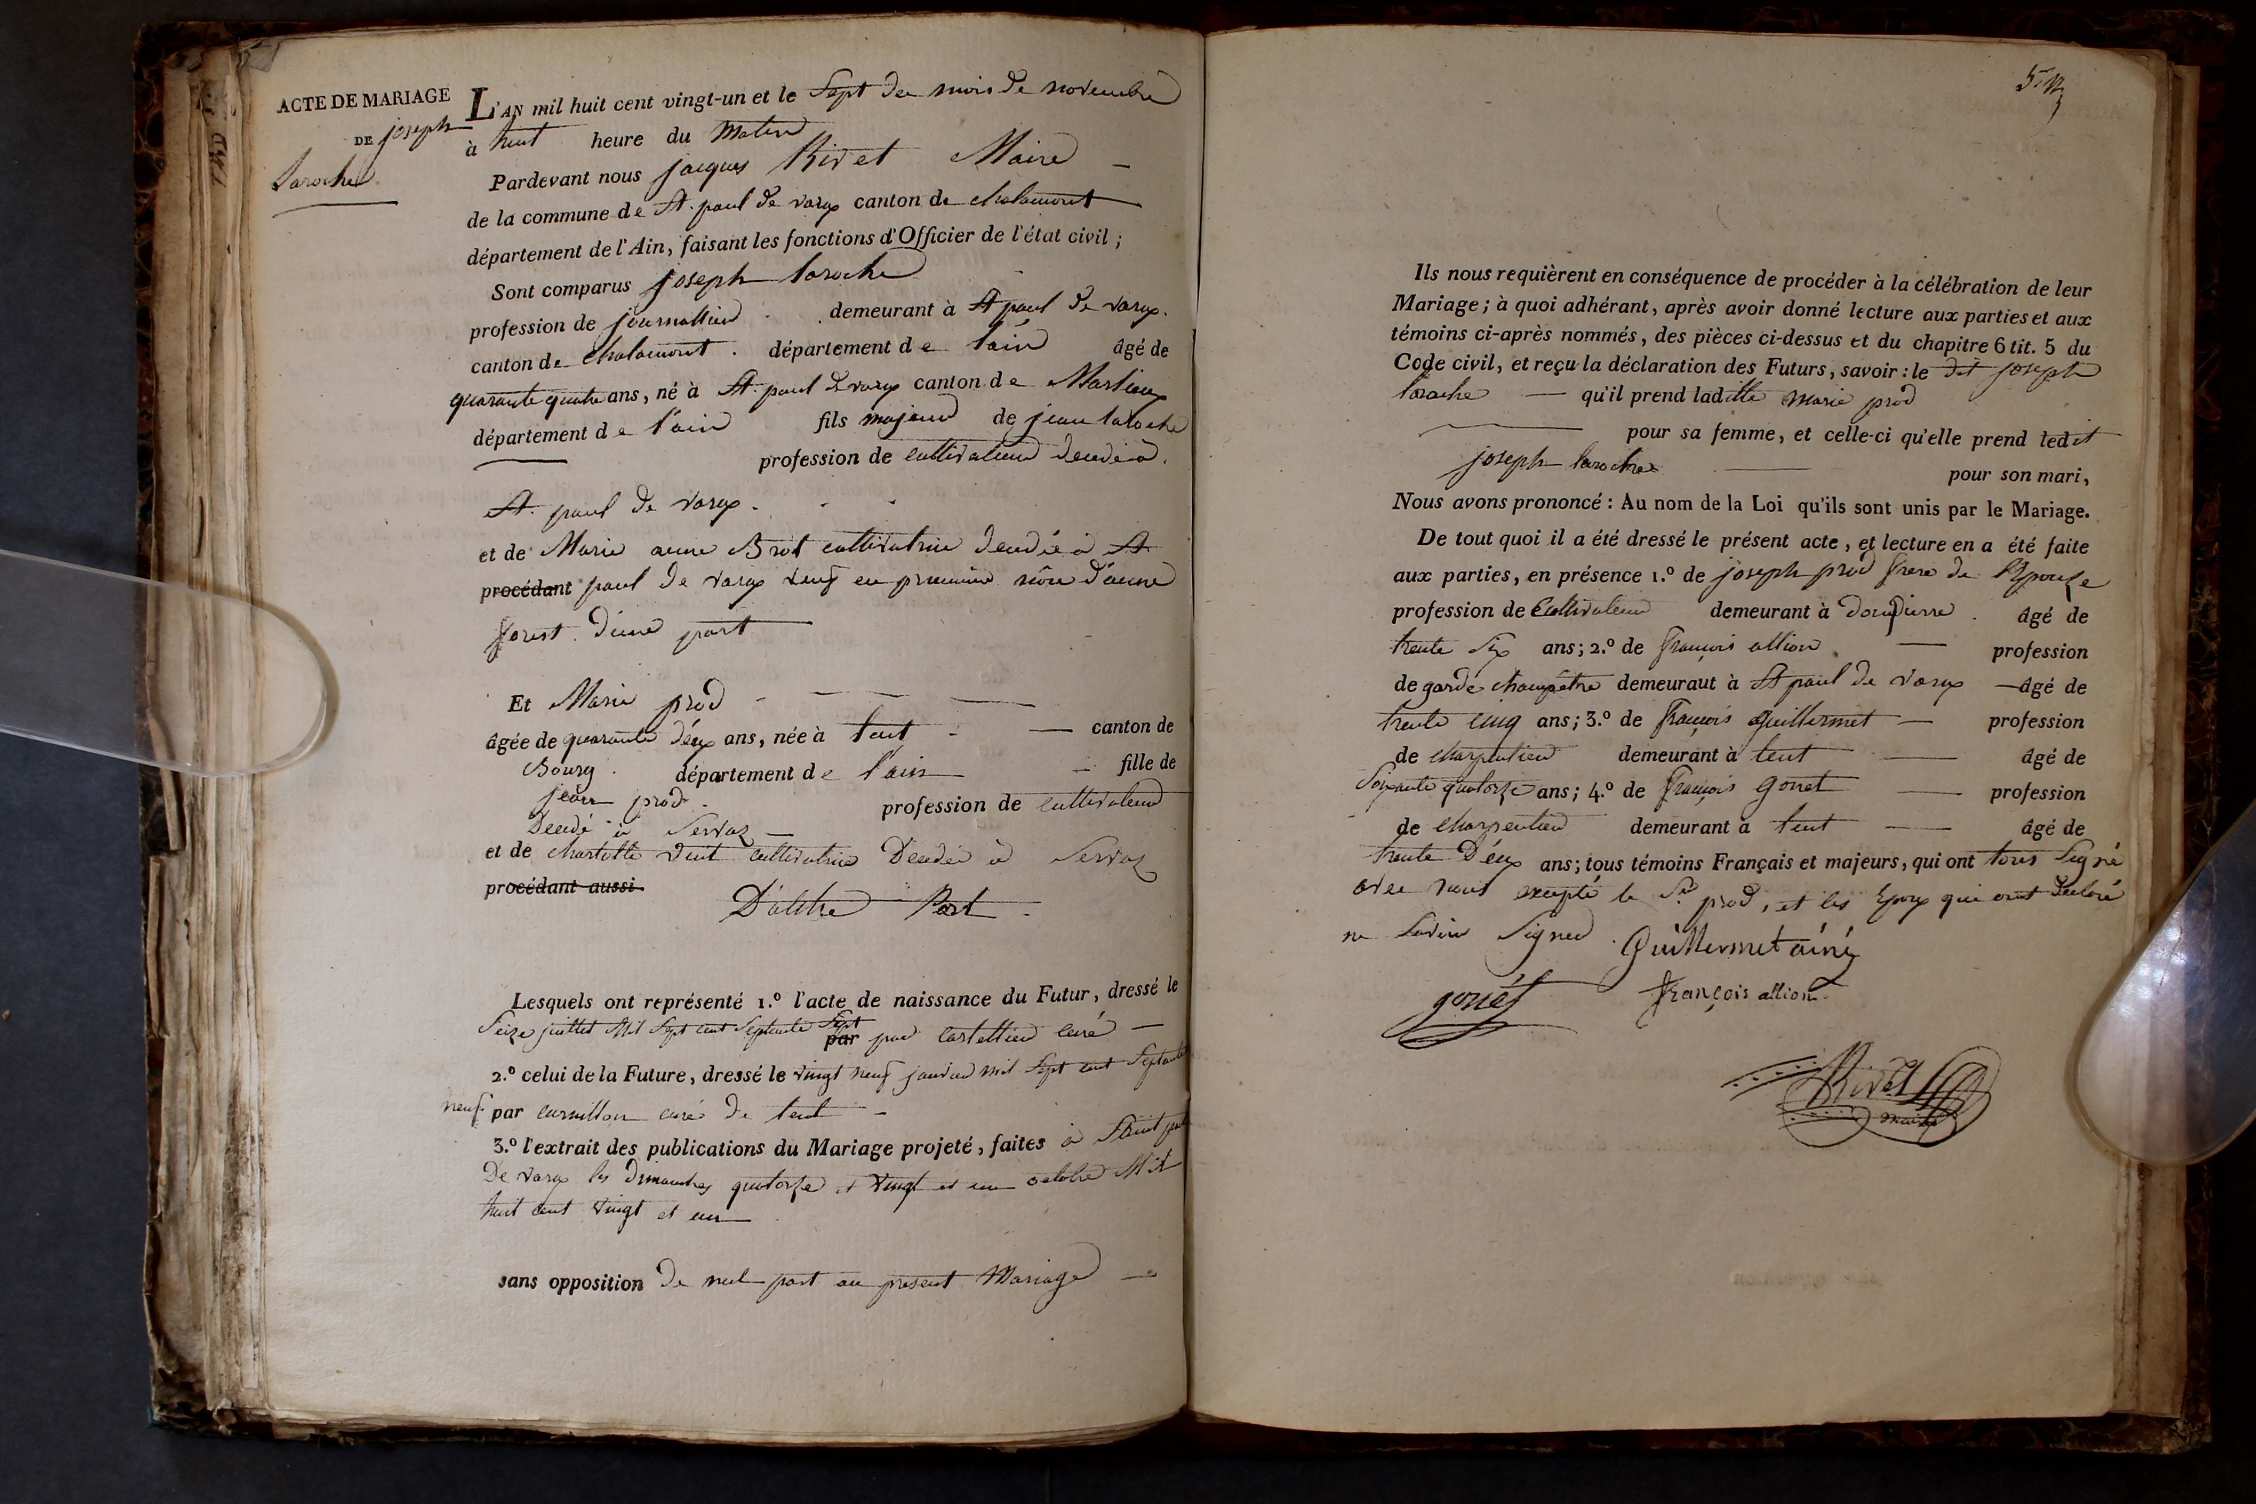 ACTE DE MARIAGE
DE joseph
Laroche
L'AN mil huit cent vingt-un et le Sept du mois de novembre
à huit heure du Matin
Pardevant nous jacques Rivet Maire
de la commune de St. paul de varax canton de chalamont
département de l'Ain, faisant les fonctions d'Officier de l'état civil ;
Sont comparus joseph laroche
profession de journallier demeurant à St paul de varax.
canton de Chalamont. département de lain âgé de
quarante quatre ans, né à St. paul de varax canton de Marlieux
département de lain fils majeur de jean laroche
profession de cultivateur decedé à
St. paul de varax.
et de Marie anne Brot cultivatrice decedée à St
procédant paul de varax veuf en premiere nôce d'anne
forest. d'une part
Et Marie prod
âgée de quarante déux ans, née à tent canton de
Bourg. département de l'ain fille de
jean prod. profession de cultivateur
Decedé à Servas
et de cultivatrice Decedée à Servas
procédant aussi
D'autre Part
Lesquels ont représenté 1.º l'acte de naissance du Futur, dressé le
Seize juillet Mil Sept cent Septante Sept
par par castellier curé
2.º celui de la Future, dressé le vingt neuf janvier mil Sept cent Septante
neuf par curé de tent
3.º l'extrait des publications du Mariage projeté, faites à Saint paul
De varax les Dimanches quatorze et vingt et un octobre Mil
huit cent vingt et un
sans opposition de nul part au present Mariage
Ils nous requièrent en conséquence de procéder à la célébration de leur
Mariage ; à quoi adhérant, après avoir donné lecture aux parties et aux
témoins ci-après nommés, des pièces ci-dessus et du chapitre 6 tit. 5 du
Code civil, et reçu la déclaration des Futurs, savoir : le dit joseph
laroche qu'il prend ladite marie prod
pour sa femme, et celle-ci qu'elle prend ledit
joseph laroche pour son mari,
Nous avons prononcé : Au nom de la Loi qu'ils sont unis par le Mariage.
De tout quoi il a été dressé le présent acte, et lecture en a été faite
aux parties, en présence 1.º de joseph prod frere de l'Epouse
profession de Cultivateur demeurant à dompierre. âgé de
trente Six ans ; 2.º de françois allion profession
de garde champêtre demeuraut à St paul de varax âgé de
trente cinq ans ; 3.º de françois guillermet profession
de charpentier demeurant à tent âgé de
Soixante quatorze ans ; 4.º de françois gonet profession
de charpentier demeurant à tent âgé de
trente Déux ans ; tous témoins Français et majeurs, qui ont tous Signé
avec nous excepté le Sr prod, et les Epoux qui ont declaré
ne Savoir Signer.
Guillermet ainé
gonet
françois allion
Rivet
maire